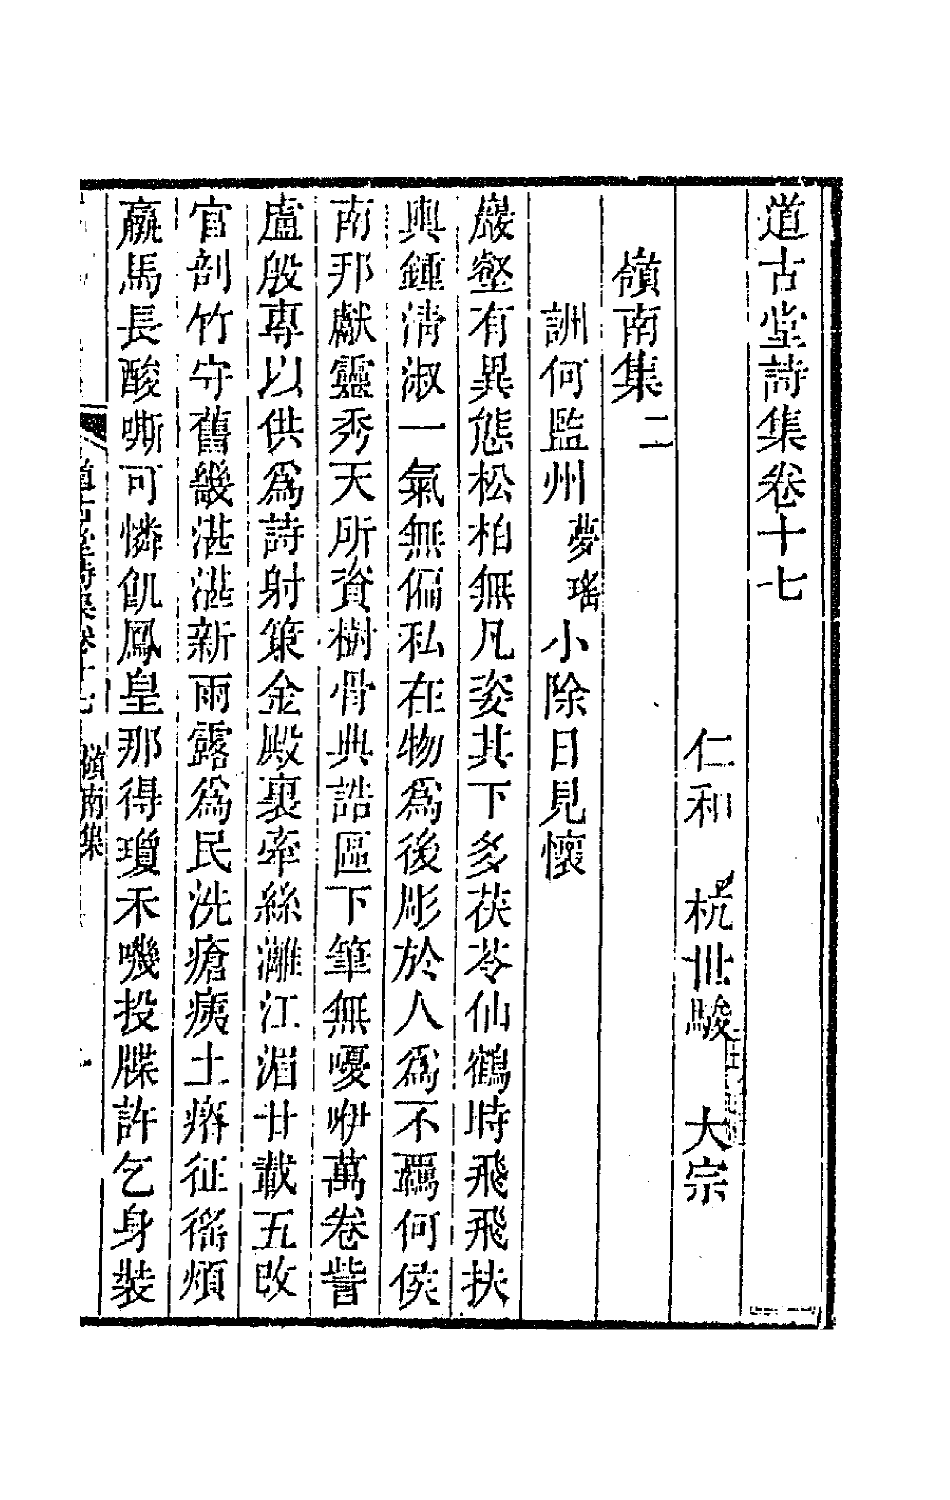 道古堂詩集卷十七
仁和 杭世駿 大宗
嶺南集二
詶何監州夢瑤小除日見懷
巖壑有異態松柏無凡姿其下多茯苓仙鶴時飛飛扶
輿鍾淸淑一氣無偏私在物爲後彫於人爲不羈何侯
南邦獻靈秀天所資樹骨典誥區下筆無嚘咿萬卷訾
盧殷專以供爲詩射策金殿裏牽絲灕江湄廿載五改
官剖竹守舊畿湛湛新雨露爲民洗瘡痍土瘠征徭煩
羸馬長酸嘶可憐飢鳳皇那得瓊禾嘰投牒許乞身裝
道古堂詩集卷十七 嶺南集